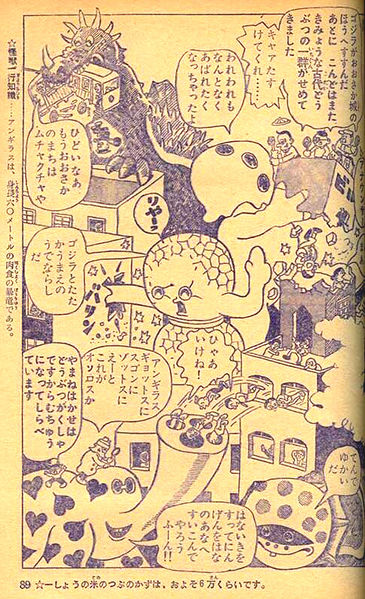 ゴジラがおおさか城の
ほうへすすんだ
あとに こんどはまた
きみょうな古代どう
ぶつの一群がせめて
きました
キャアたす
けてくれ……
われわれも
なんとなく
あばれたく
なっちゃったよ
ひどいなあ
もうおおさか
のまちは
ムチャクチャや
リャーッ
ゴジラとたた
かうまえの
うでならし
だ
バリン
ひゃあ
いけねー
アンギラス
ギョットスに
スゴンに
ゾットスに
こえーと
これが
オソロスか
やまねはかせは
どうぶつがくしゃ
ですからむちゅう
になってしらべ
ています
てんで
ゆかい
だ
はないきを
すってにん
げんをはな
のあなへ
すいこんで
やろう
ふーん!!
☆怪獣一行知識……アンギラスは、身長六〇メートルの肉食の暴竜である。
89 ☆一しょうの米のつぶのかずは、およそ6万くらいです。